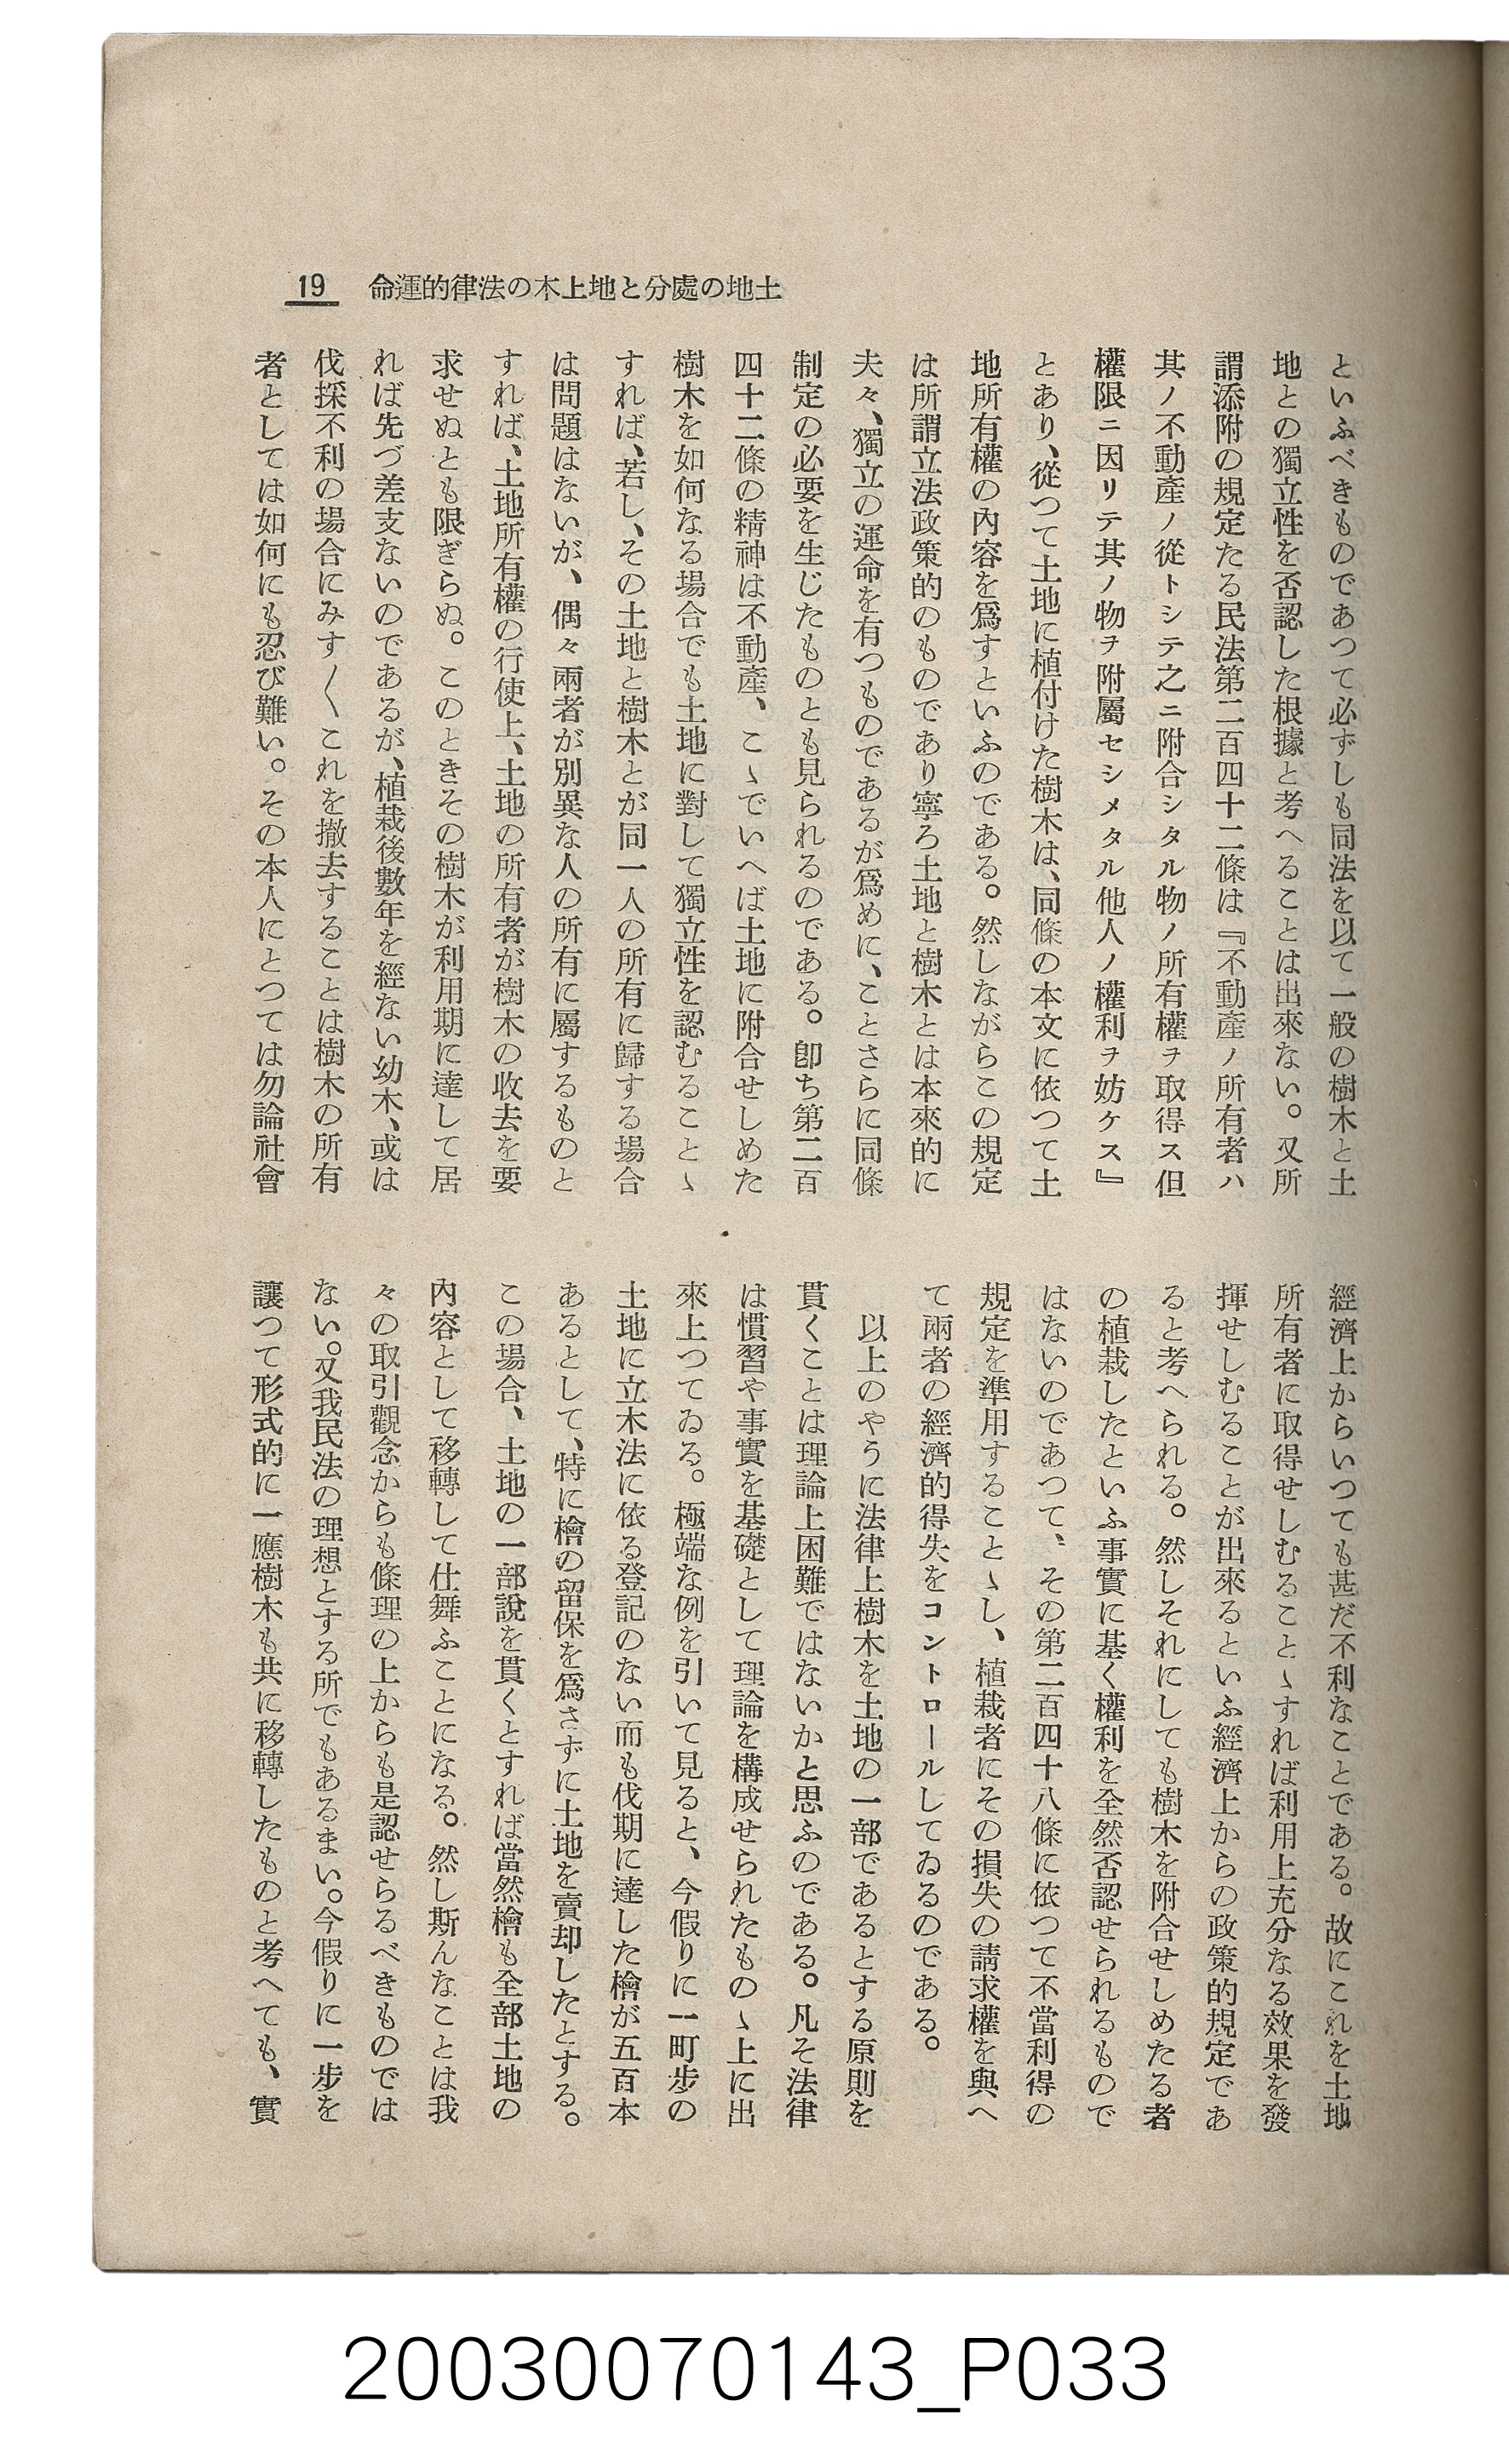 19 命運的律法の木上地と分處の地土
といふべきものであつて必ずしも同法を以て一般の樹木と土
地との獨立性を否認した根據と考へることは出來ない。又所
謂添附の規定たる民法第二百四十二條は『不動產ノ所有者ハ
其ノ不動產ノ從トシテ之ニ附合シタル物ノ所有權ヲ取得ス但
權限ニ因リテ其ノ物ヲ附屬セシメタル他人ノ權利ヲ妨ケス』
とあり、從つて土地に植付けた樹木は、同條の本文に依つて土
地所有權の內容を爲すといふのである。然しながらこの規定
は所謂立法政策的のものであり寧ろ土地と樹木とは本來的に
夫々、獨立の運命を有つものであるが爲めに、ことさらに同條
制定の必要を生じたものとも見られるのである。卽ち第二百
四十二條の精神は不動產、こゝでいへば土地に附合せしめた
樹木を如何なる場合でも土地に對して獨立性を認むることゝ
すれば、若し、その土地と樹木とが同一人の所有に歸する場合
は問題はないが、偶々兩者が別異な人の所有に屬するものと
すれば、土地所有權の行使上、土地の所有者が樹木の收去を要
求せぬとも限ぎらぬ。このときその樹木が利用期に達して居
れば先づ差支ないのであるが、植栽後數年を經ない幼木、或は
伐採不利の場合にみす〳〵これを撤去することは樹木の所有
者としては如何にも忍び難い。その本人にとつては勿論社會
經濟上からいつても甚だ不利なことである。故にこれを土地
所有者に取得せしむることゝすれば利用上充分なる效果を發
揮せしむることが出來るといふ經濟上からの政策的規定であ
ると考へられる。然しそれにしても樹木を附合せしめたる者
の植栽したといふ事實に基く權利を全然否認せられるもので
はないのであつて、その第二百四十八條に依つて不當利得の
規定を準用することゝし、植栽者にその損失の請求權を與へ
て兩者の經濟的得失をコントロールしてゐるのである。
以上のやうに法律上樹木を土地の一部であるとする原則を
貫くことは理論上困難ではないかと思ふのである。凡そ法律
は慣習や事實を基礎として理論を構成せられたものゝ上に出
來上つてゐる。極端な例を引いて見ると、今假りに一町步の
土地に立木法に依る登記のない而も伐期に達した檜が五百本
あるとして、特に檜の留保を爲さずに土地を賣却したとする。
この場合、土地の一部說を貫くとすれば當然檜も全部土地の
內容として移轉して仕舞ふことになる。然し斯んなことは我
々の取引觀念からも條理の上からも是認せらるべきものでは
ない。又我民法の理想とする所でもあるまい。今假りに一步を
讓つて形式的に一應樹木も共に移轉したものと考へても、實
20030070143_P033